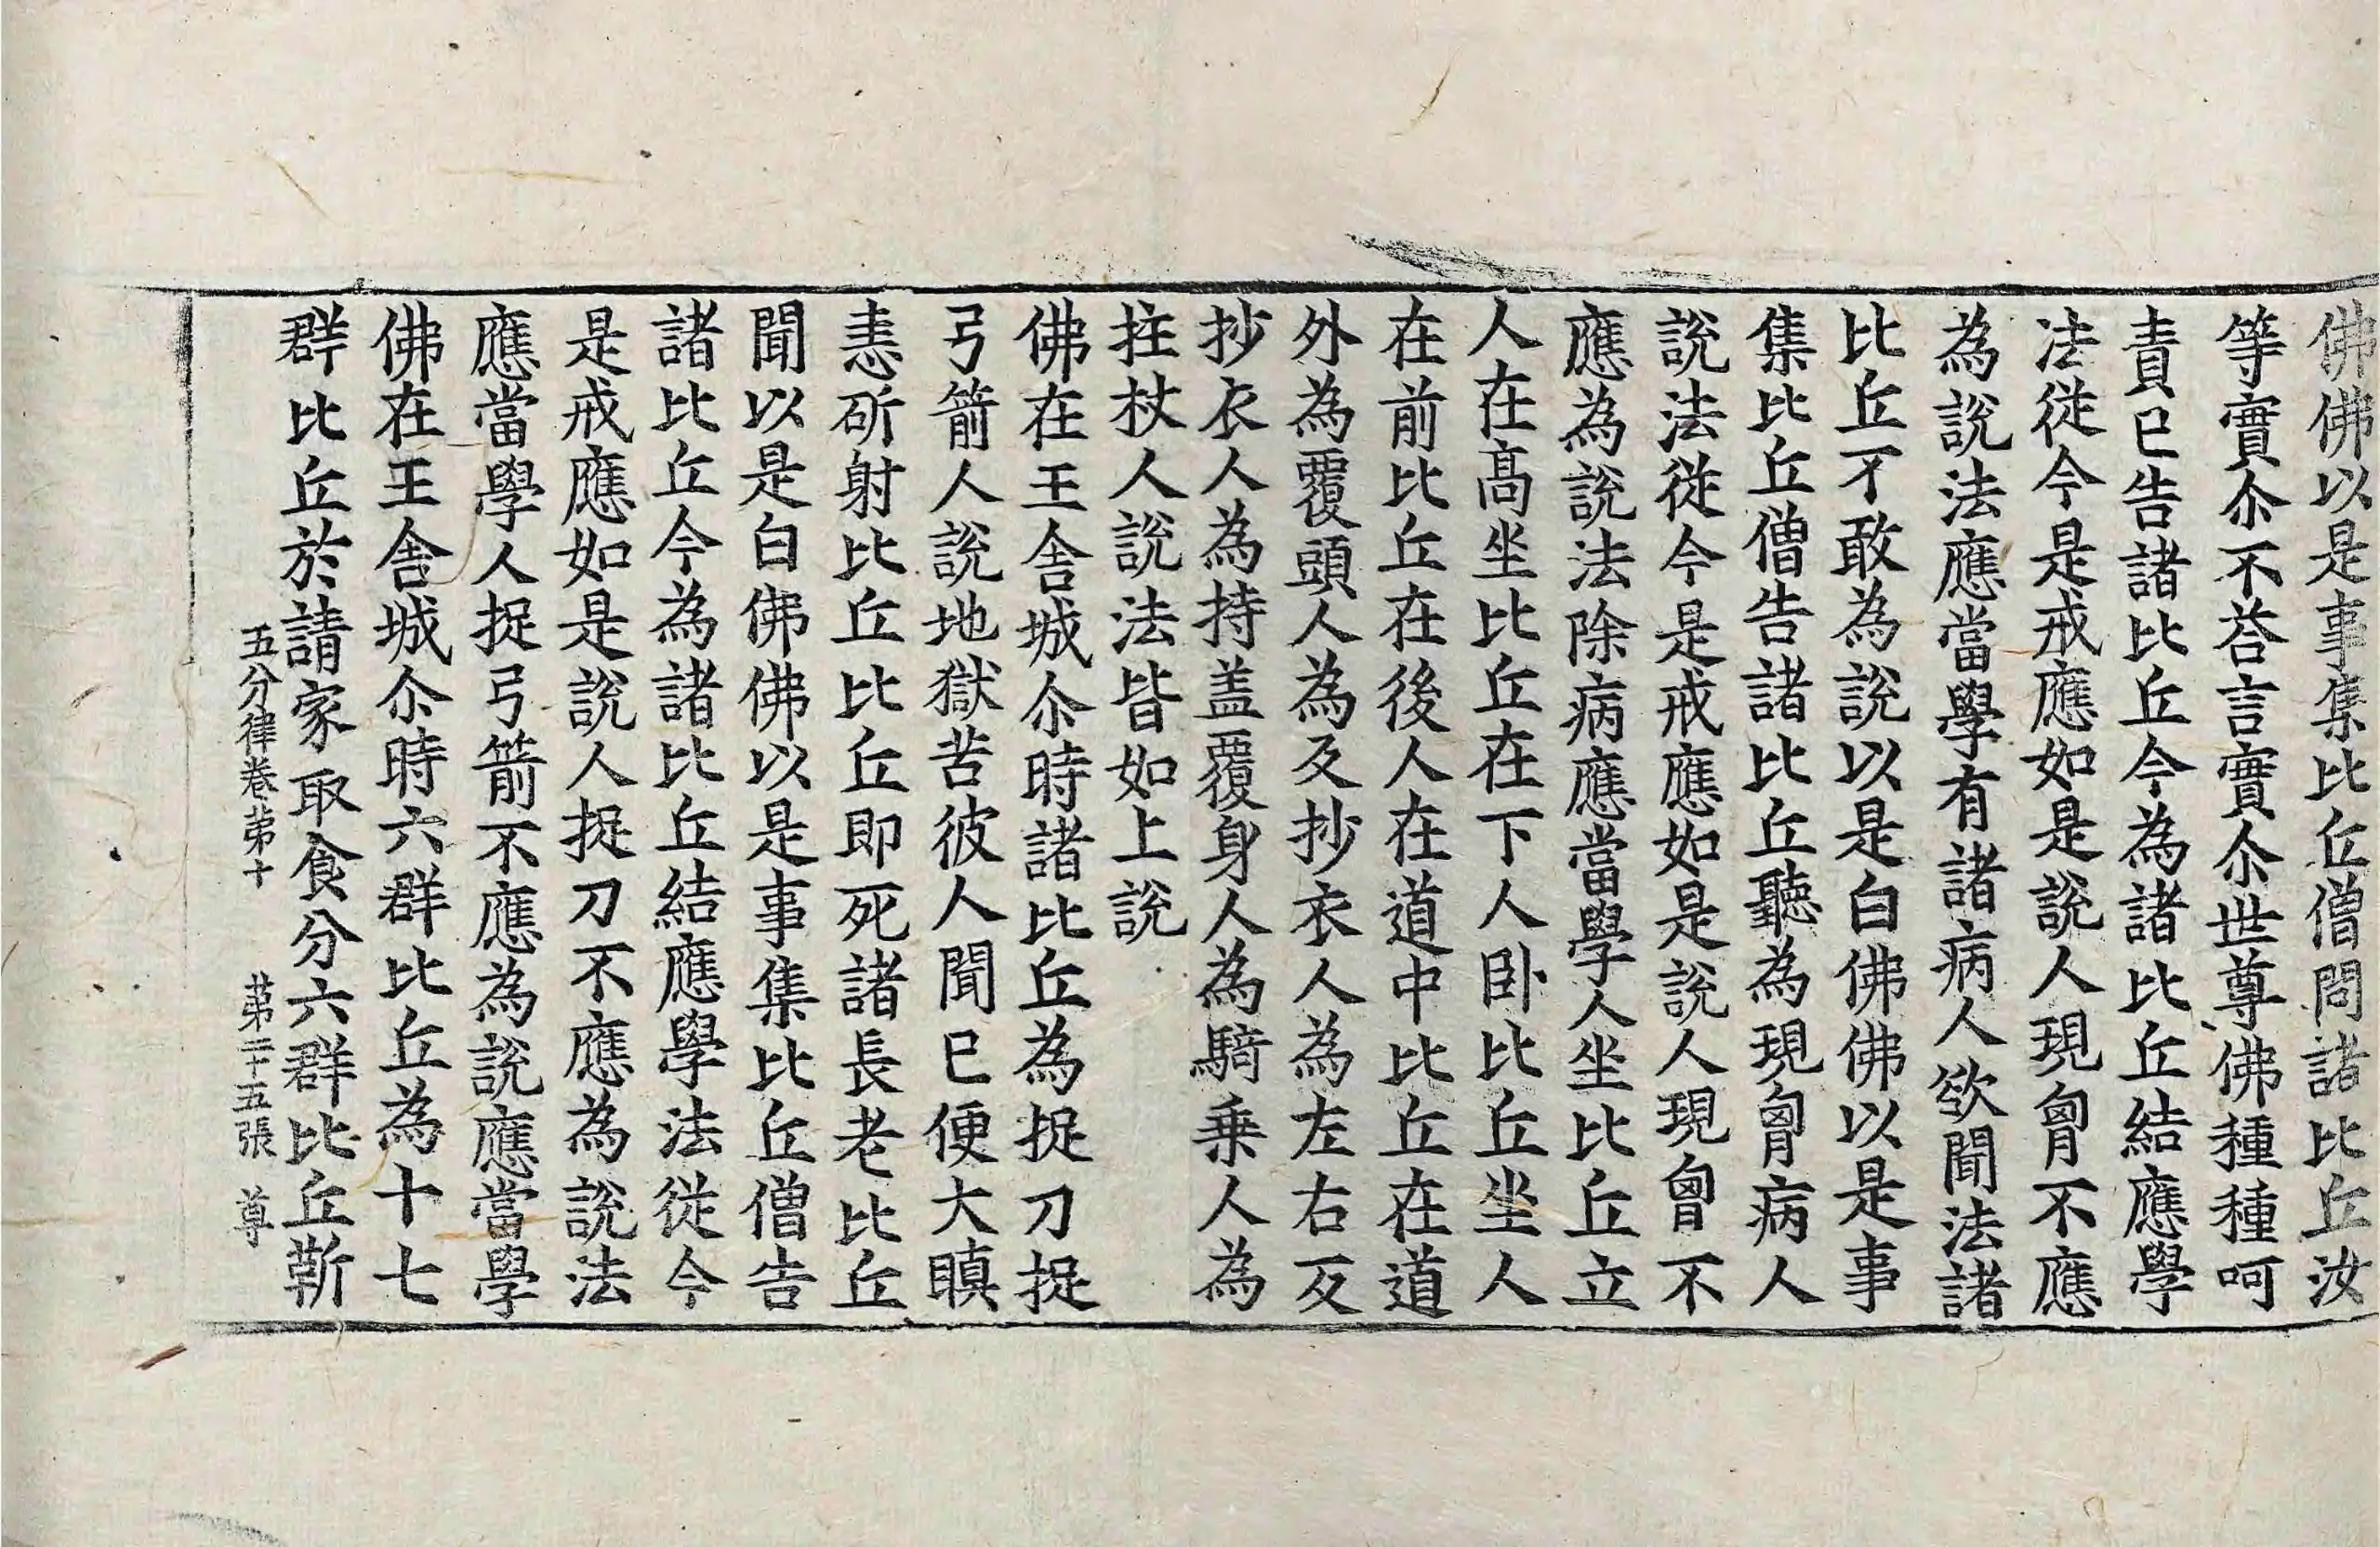 佛佛以是事集比丘僧問諸比丘汝
等實尒不荅言實尒世尊佛種種呵
責已告諸比丘今為諸比丘結應學
法從今是戒應如是說人現胷不應
為說法應當學有諸病人欲聞法諸
比丘不敢為說以是白佛佛以是事
集比丘僧告諸比丘聽為現胷病人
說法從今是戒應如是說人現胷不
應為說法除病應當學人坐比丘立
人在高坐比丘在下人卧比丘坐人
在前比丘在後人在道中比丘在道
外為覆頭人為反抄衣人為左右反
抄衣人為持盖覆身人為騎乗人為
拄杖人說法皆如上說
佛在王舍城尒時諸比丘為捉刀捉
弓箭人說地獄苦彼人聞已便大瞋
恚斫射比丘比丘即死諸長老比丘
聞以是白佛佛以是事集比丘僧告
諸比丘今為諸比丘結應學法從今
是戒應如是說人捉刀不應為說法
應當學人捉弓箭不應為說應當學
佛在王舍城尒時六群比丘為十七
群比丘於請家取食分六群比丘蘄
五分律卷苐十 苐二十五張 尊